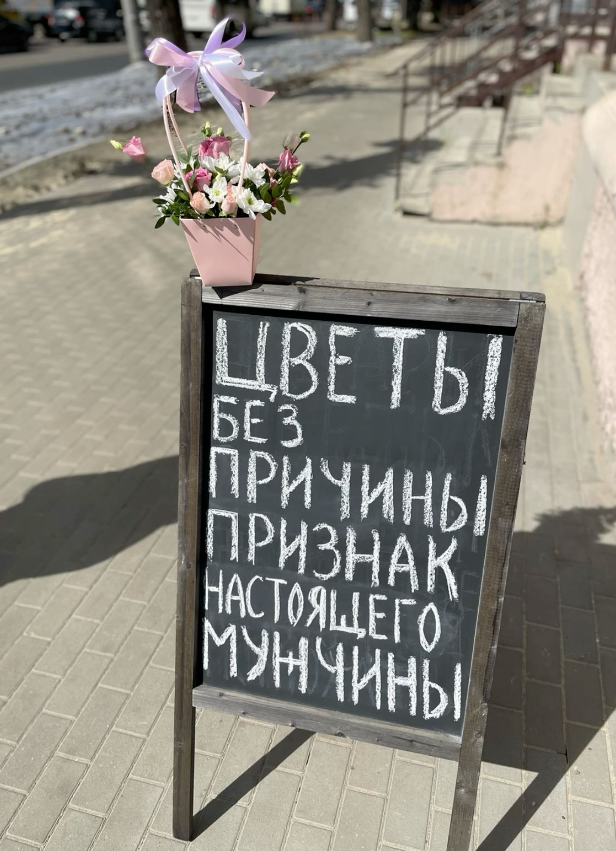 ЦВЕТЫ
БЕЗ
ПРИЧИНЫ
ПРИЗНАК
НАСТОЯЩЕГО
МУЖЧИНЫ